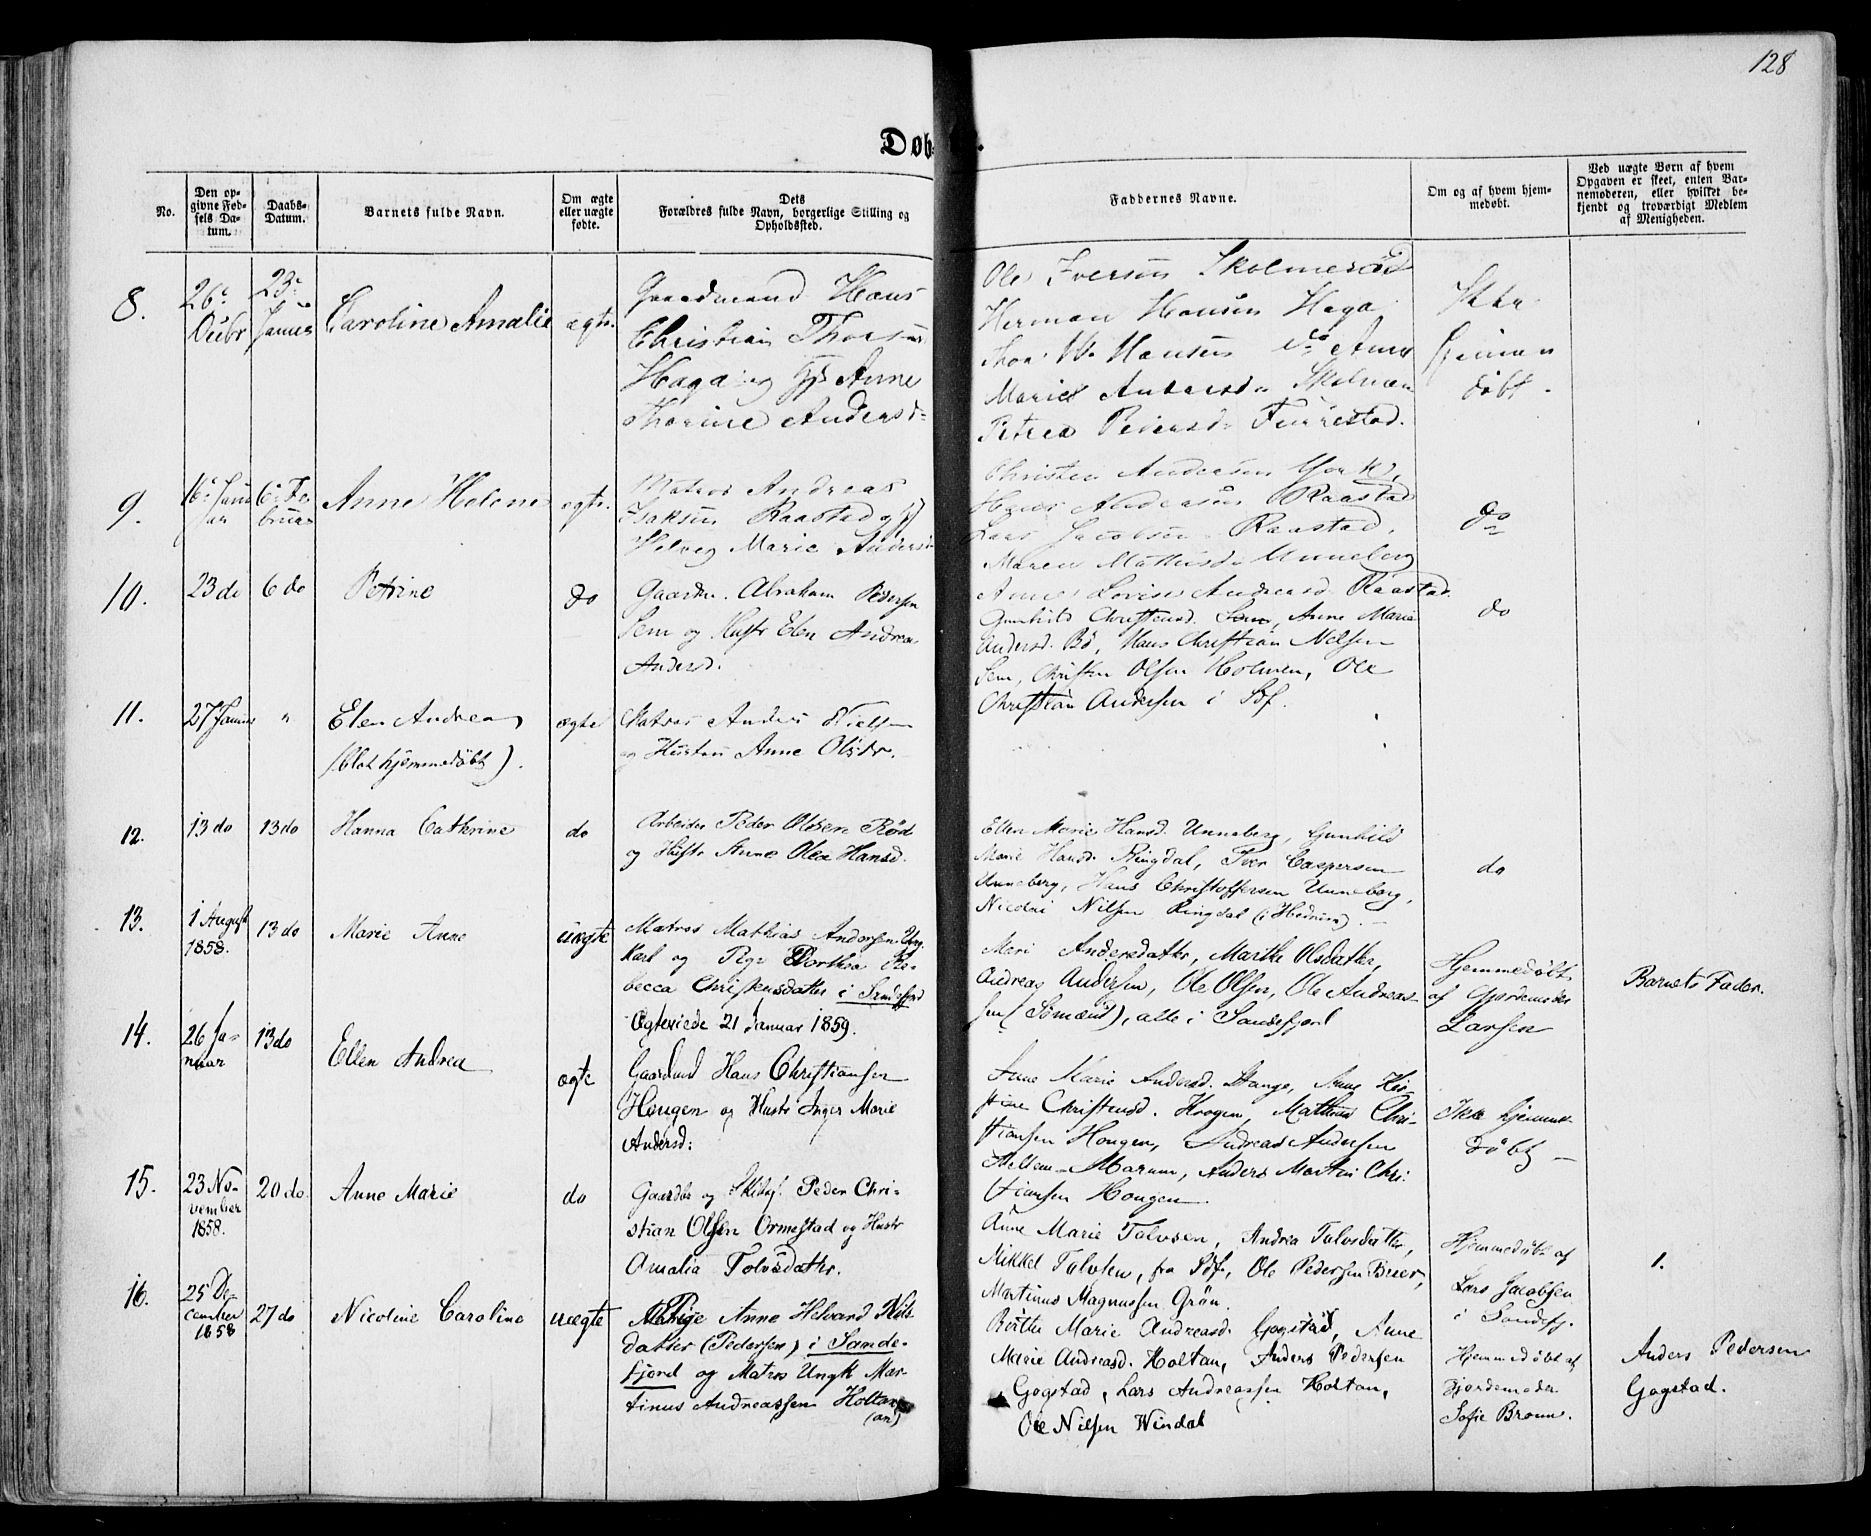 128
Døbte.
No.
Den opgivne Fødsels Datum.
Daabs-Datum.
Barnets fulde Navn.
Om ægte eller uægte fødte.
Dets Forældres fulde Navn, borgerlige Stilling og Opholdssted.
Faddernes Navne.
Om og af hvem hjemmedøbt.
Ved uægte Børn af hvem Opgaven er skeet, enten Barnemoderen, eller hvilket bekjendt og troværdigt Medlem af Menigheden.
8.
26
23
Caroline Amalie
ægte
Gaardmand Hans
Christian
Haga og Anne
Thorine Andersd
Ole Iversen
Herman Hansen Haga
Hansen do Anne
Marie Andersd
Petrea Pedersd Furrestad.
Ikke
hjemme
døbt
9.
16 Januar
6 Februar
Anne Helene
ægte
Matros Andreas
Isaksen Raastad og
Helvig Marie Anders
Christen Andersen
Hans Andersen Raastad
Lars Jacobsen Raastad,
Maren Unneberg
Anne Lovise Andreasd Raastad
do
10.
23 do
6 do
Petrine
do
Gaardm. Abraham Pedersen
Sem og Hustr Elen Andrea
Andersd.
Gunhild Christensd. Anne Marie
Andersd. Bö, Hans Christian Nelsen
Sem, Christen Olsen Holmen, Ole
Christian Andersen i Sdf.
do
11.
27 Januar
"
Elen Andrea
(blot hjemmedøbt).
ægte
Matros Anders
og Hustru Anne Olsdr.
12.
13 do
13 do
Hanna Cathrine
do
Arbeider Peder Olsen Röd
og Hustr Anne Olea Hansd.
Ellen Marie Hansd. Unneberg, Gunhild
Marie Hansd. Ringdal, Iver Caspersen
Unneberg, Hans Christoffersen Unneberg,
Nicolai Nilsen Ringdal (i Hedrum).
do
13.
1 August
1858.
13 do
Marie Anne
uægte
Matros Mathias Andersen Ung
karl og Pige Dorthea Re-
becca Christensdatter i Sandefjord
Ægteviede 21 Januar 1859.
Mari Andersdatter, Marthe Olsdatter,
Andreas Andersen, Ole Olsen, Ole Andreas-
sen (Sömænd), alle i Sandefjord
Hjemmedøbt
af Gjordemoder
Larsen
Barnets Fader.
14.
26 Ja-
nuar
13 do
Ellen Andrea
ægte
Gaardmd Hans Christiansen
Hougen og Hustr Inger Marie
Andersd:
Anne Marie Andersd. Stange, Anne
Christensd. Hougen, Mathias Chri-
stiansen Hougen, Andreas Andersen
Mellem-Marum, Anders Martin Chri-
stiansen Hougen.
Ikke hjemme-
døbt
15.
23 No-
vember
1858.
20 do.
Anne Marie
do
Gaardbr og Peder Chri-
stian Olsen Ormestad og Hustr
Amalia Tolvsdatter.
Anne Marie Tolvsen, Andrea Tolvsdatter,
Mikkel Tolvsen, fra Sdf., Ole Pedersen Buer,
Martinus Magnussen Grön.
Hjemmedøbt af
Lars Jacobsen
i Sandefj.
1.
16.
25 De-
cember
1858
27 do
Nicoline Caroline
uægte
Pige Anne Helvard Nils-
datter (Pedersen) i Sande-
fjord og Matros Ungk Mar-
tinus Andreassen Holtan
(an)
Berthe Marie Andreasd. Gogstad, Anne
Marie Andreasd. Holtan, Anders Pedersen
Gogstad, Lars Andreassen Holtan,
Ole Nilsen Windal
Hjemmedøbt af
Gjordemoder
Sofie Bruun.
Anders Pedersen
Gogstad.